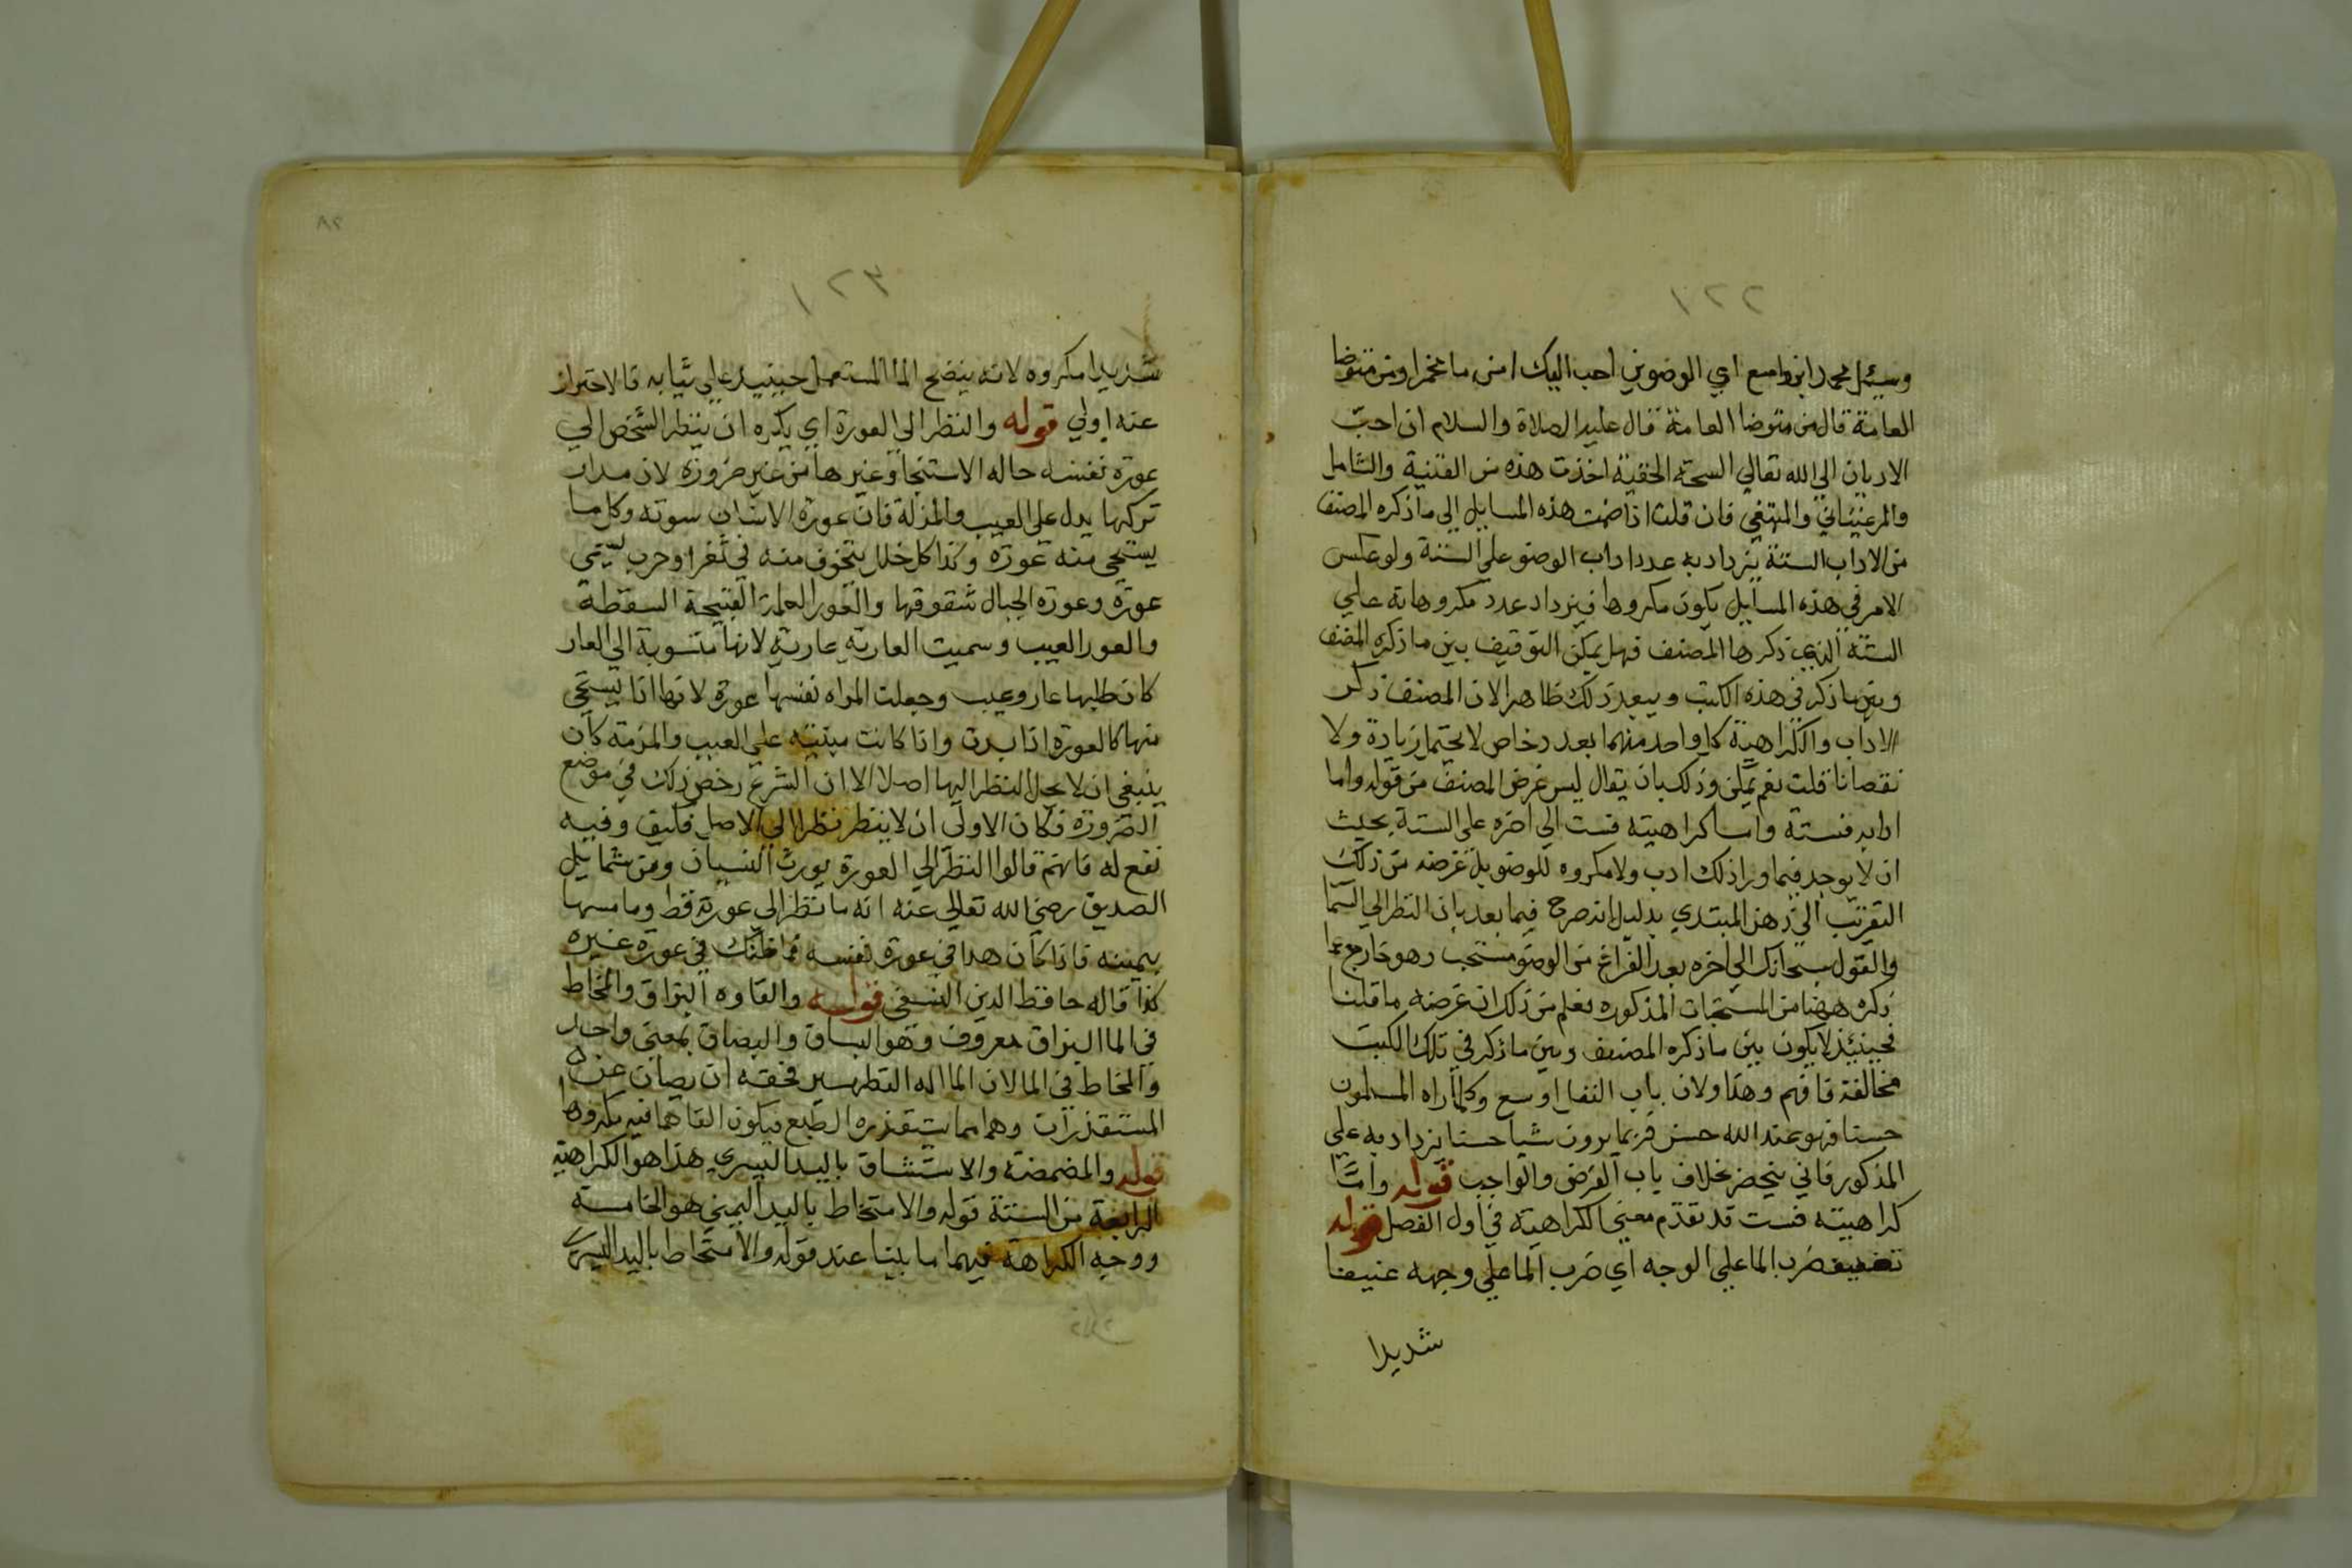 ١٢٢
وسئل محمد ابن واسع اي الوضوين احب اليك امن ما مخمر او من متوضا
العامة قال من متوضا العامة قال عليه الصلاة والسلام ان احب
الاديان الي الله تعالي السمحة الحنفية اخذت هذه من القنية والشامل
والمرغيناني والمبتغي فان قلت اذا ضمت هذه المسايل الي ما ذكره المصنف
من الاداب الستة يزداد به عدد اداب الوضو علي الستة ولو عكس
الامر في هذه المسايل يكون مكروها فيزداد عدد مكروهاته علي
الستة الذي ذكرها المصنف فهل يمكن التوفيق بين ما ذكره المصنف
وبين ما ذكر في هذه الكتب ويبعد ذلك ظاهرا لان المصنف ذكر
الاداب والكراهية كل واحد منهما بعدد خاص لا يحتمل زيادة ولا
نقصانا قلت نعم يمكن وذلك بان يقال ليس غرض المصنف من قوله واما
ادابه فستة واما كراهيته فست الي اخره علي الستة بحيث
ان لا يوجد فيما ورا ذلك ادب ولا مكروه للوضو بل غرضه من ذلك
التقريب الي ذهن المبتدي بدليل انه صرح فيما بعد بان النظر الي السما
والقول سبحانك الي اخره بعد الفراغ من الوضو مستحب وهو خارج عما
ذكره ههنا من المستحبات المذكوره فعلم من ذلك ان غرضه ما قلنا
فحينئذ لا يكون بين ما ذكره المصنف وبين ما ذكر في تلك الكتب
مخالفة فافهم وهذا ولان باب النفل اوسع وكلما راه المسلمون
حسنا فهو عند الله حسن فربما يرون شيا حسنا يزداد به علي
المذكور فاني ينحصر بخلاف باب الفرض والواجب قوله واما
كراهيته فست قد تقدم معني الكراهية في اول الفصل قوله
تعنيف ضرب الما علي الوجه اي ضرب الما علي وجهه عنيفا
شديدا
٢٨
١٢٣
شديدا مكروه لانه ينضح الما المستعمل حينيد علي ثيابه فالاحتراز
عنه اولي قوله والنظر الي العورة اي يكره ان ينظر الشخص الي
عورة نفسه حاله الاستنجا وغيرها من غير ضرورة لان مدار
تركبها يدل علي العيب والمذلة فان عورة الانسان سوته وكل ما
يستحي منه عورة وكذا كل خلل يتخوف منه في ثغر او حرب يسمي
عورة وعورة الجبال شقوقها والعورا الكلمة القبيحة السقطة
والعور العيب وسميت العارية عارية لانها منسوبة الي العار
كان طلبها عار وعيب وجعلت المراه نفسها عورة لانها اذا يستحي
منها كالعورة اذا بدت واذا كانت مبنية علي العيب والمزمة كان
ينبغي ان لا يحل النظر اليها اصلا الا ان الشرع رخص ذلك في موضع
الضرورة فكان الاولي ان لا ينظر نظرا الي الاصل فكيف وفيه
نفع له فانهم قالوا النظر الي العورة يورث النسيان ومن شمايل
الصديق رضي الله تعالي عنه انه ما نظر الي عورته قط وما مسها
بيمينه فاذا كان هذا في عورة نفسه فما ظنك في عورة غيره
كذا قاله حافظ الدين النسفي قوله والقاوه البزاق والمخاط
في الما البزاق معروف وهو البساق والبصاق بمعني واحد
والمخاط في الما لان الما اله التطهير فحقه ان يصان عن
المستقذرات وهما مما يستقذره الطبع فيكون القاهما فيه مكروها
قوله والمضمضة والاستنشاق باليد اليسري هذا هو الكراهية
الرابعة من الستة قوله والامتخاط باليد اليمني هو الخامسة
ووجه الكراهة فيهما ما بينا عند قوله والامتخاط باليد اليسري